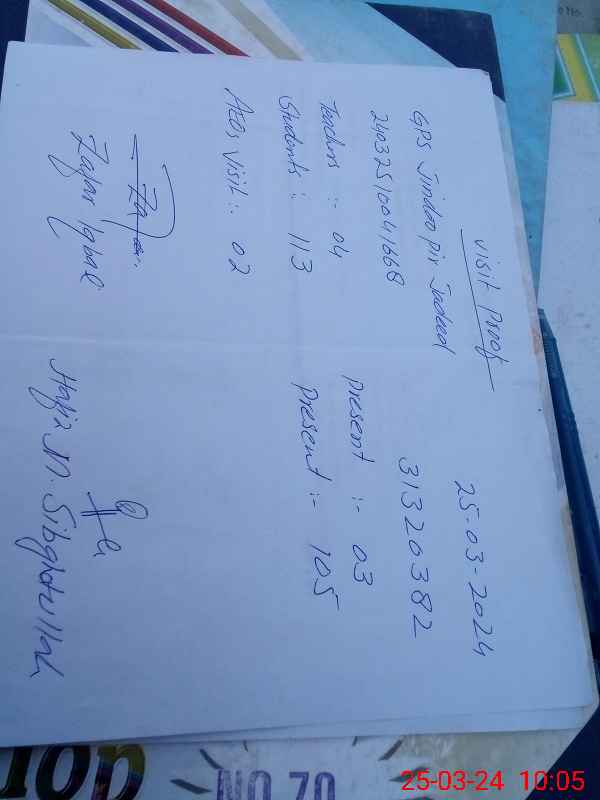 visit Proof
25-03-2024
GPS Jindoo pir Jadeed
31320382
24032510041668
Teachers :- 04 Present :- 03
Students :- 113 Present :- 105
AEO, Visit :- 02
Zafar Iqbal
Hafiz M. Sibghatullah
NO.70
25-03-24 10:05